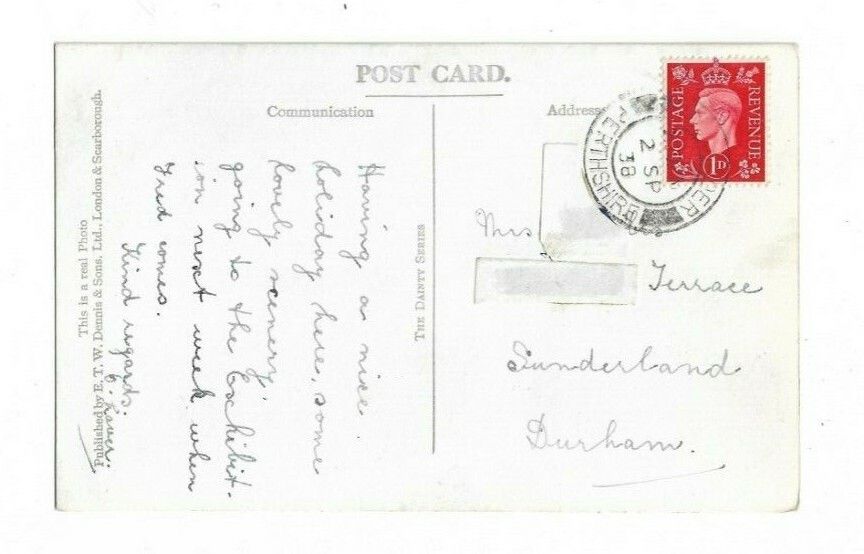 POST CARD.
Communication
Address
Having a nice
holiday here, some
lovely scenery,
going to the Exhibit-
ion next week when
Fred comes.
Kind regards,
This is a real Photo
Published by E. T. W. Dennis & Sons, Ltd., London & Scarborough.
THE DAINTY SERIES
POSTAGE
REVENUE
1D
PERTHSHIRE
2 SP
38
Mrs
Terrace
Sunderland
Durham.